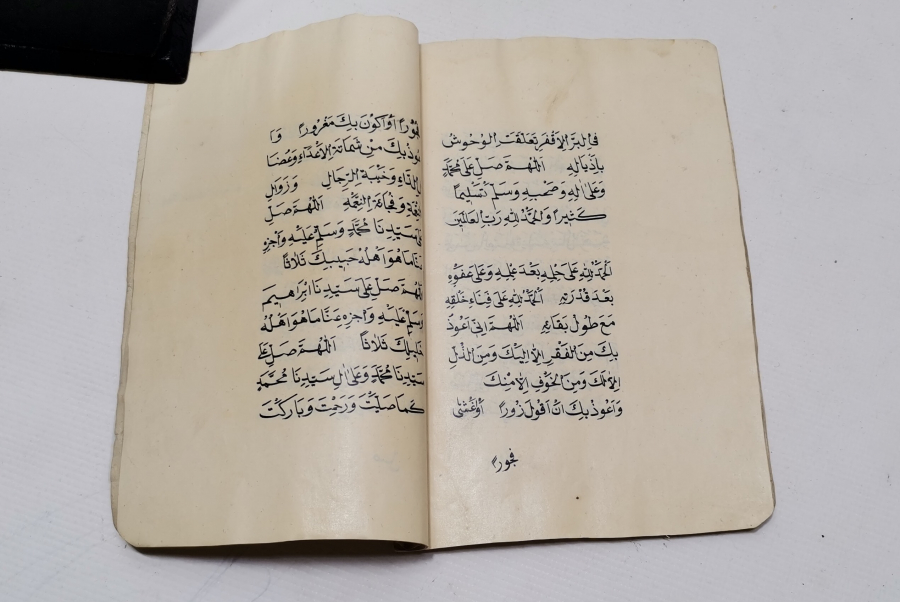 في البر الاقفر تعلقت الوحوش
باذياله اللهم صل على محمد
وعلى اله وصحبه وسلم تسليما
كثيرا والحمد لله رب العالمين
الحمد لله على حلمه بعد علمه وعلى عفوه
بعد قدرته الحمد لله على فناء خلقه
مع طول بقائه اللهم اني اعوذ
بك من الفقر الا اليك ومن الذل
الا لك ومن الخوف الا منك
واعوذ بك ان اقول زورا او اغشى
فجورا
فجورا او اكون بك مغرورا وا
عوذ بك من شماتة الاعداء وعضا
ل الداء وخيبة الرجال وزوال
نعمة وفجاة النقمة اللهم صل
على سيدنا محمد وسلم عليه واجزه
عنا ما هو اهله حبيبك ثلاثا
اللهم صل على سيدنا ابراهيم
وسلم عليه واجزه عنا ما هو اهله
خليلك ثلاثا اللهم صل على
سيدنا محمد وعلى ال سيدنا محمد
كما صليت ورحمت وباركت